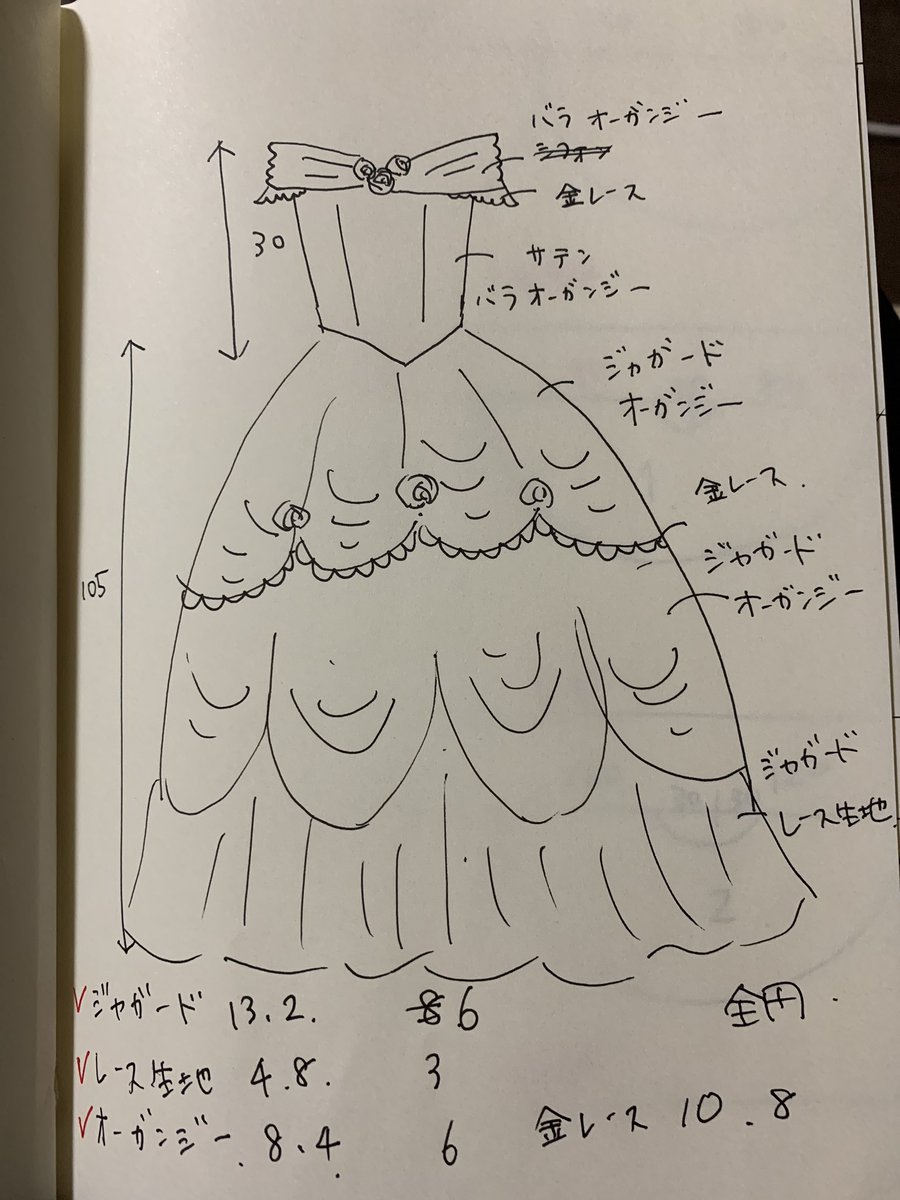 バラ オーガンジー
シフォン
金レース
30
サテン
バラ オーガンジー
ジャガード
オーガンジー
金レース.
105
ジャガード
オーガンジー
ジャガード
レース生地
✓ジャガード 13.2. 8 6 全円.
✓レース生地 4.8. 3
✓オーガンジー.8.4. 6 金レース 10.8